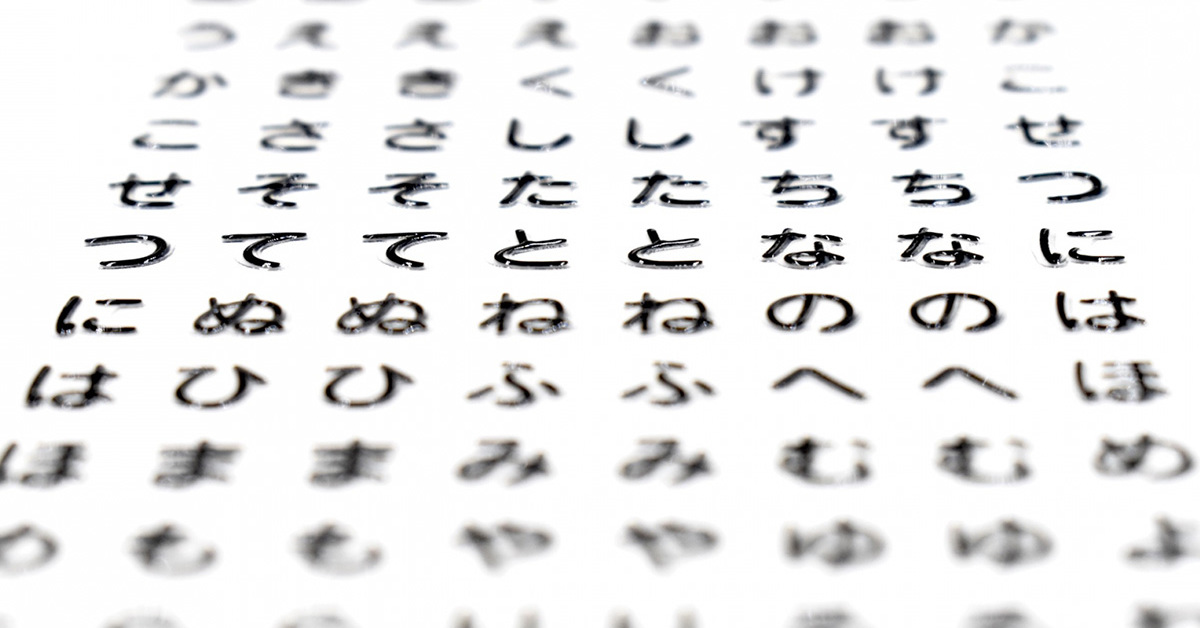 う え え え お お お か
か き き く く け け こ
こ さ さ し し す す せ
せ そ そ た た ち ち つ
つ て て と と な な に
に ぬ ぬ ね ね の の は
は ひ ひ ふ ふ へ へ ほ
ほ ま ま み み む む め
め も も や や ゆ ゆ よ